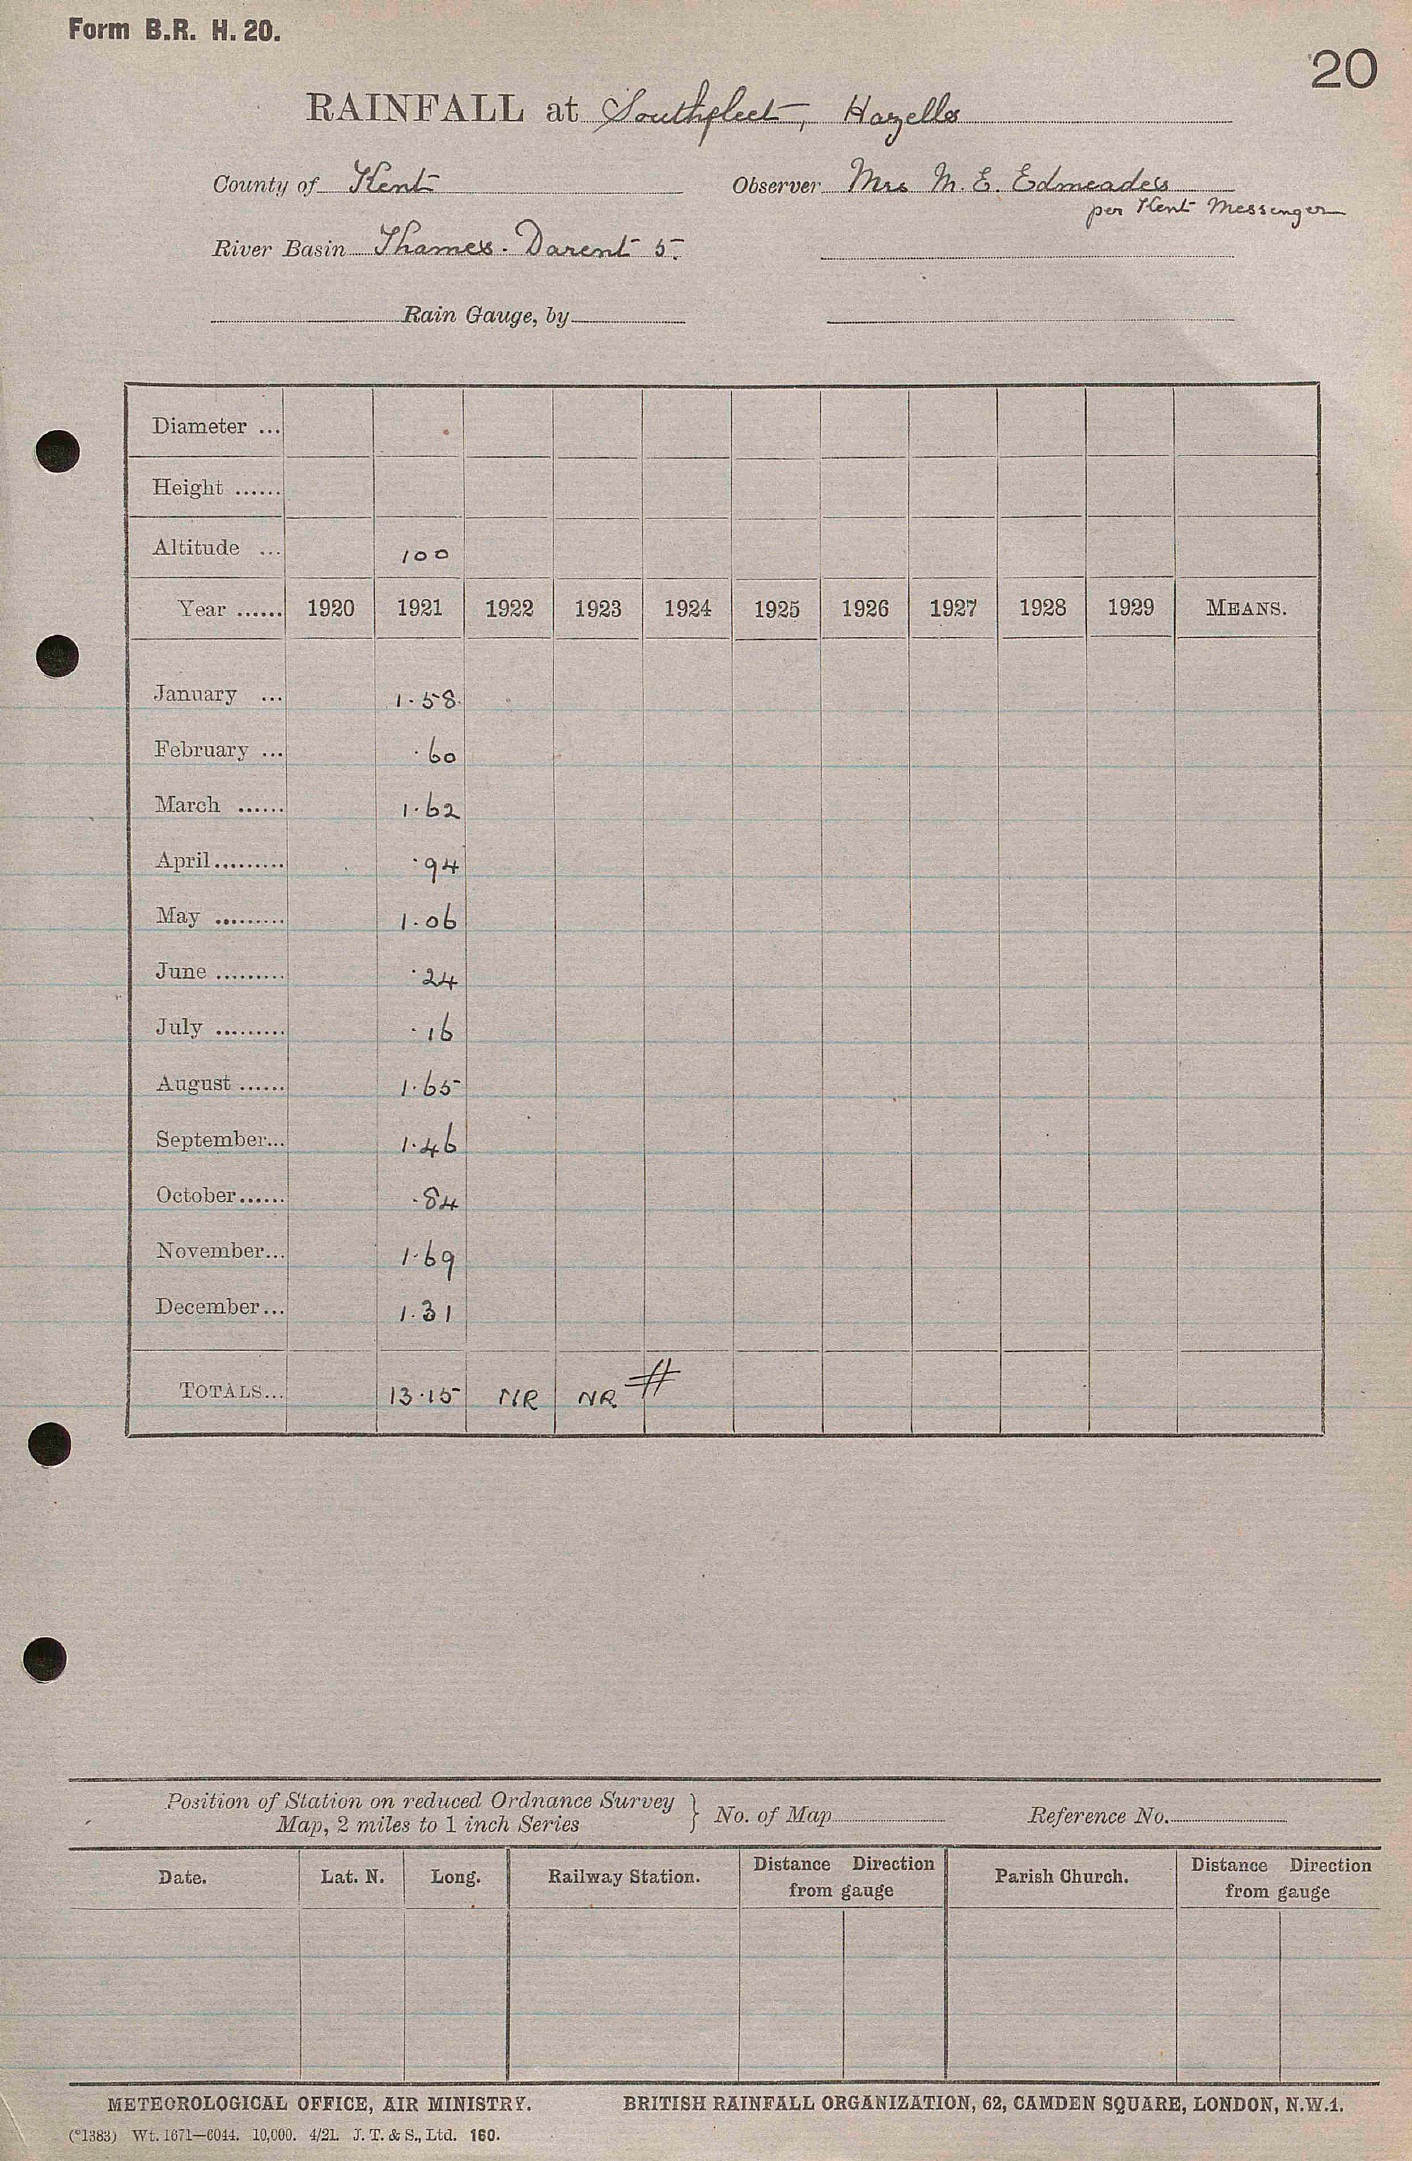 Form B.R. H. 20.
20
RAINFALL at Southfleet, Hazells
County of Kent Observer Mrs M. E. Edmeades
per Kent Messenger
River Basin Thames. Darent 5.
Rain Gauge, by
Diameter ...
Height ......
Altitude ... 100
Year ...... 1920 1921 1922 1923 1924 1925 1926 1927 1928 1929 MEANS.
January ... 1.58
February ... .60
March ...... 1.62
April......... .94
May ......... 1.06
June ......... .24
July ......... .16
August ...... 1.65
September... 1.46
October...... .84
November... 1.69
December... 1.31
TOTALS... 13.15 NR NR #
Position of Station on reduced Ordnance Survey
Map, 2 miles to 1 inch Series } No. of Map Reference No.
Date. Lat. N. Long. Railway Station. Distance Direction from gauge Parish Church. Distance Direction from gauge
METEOROLOGICAL OFFICE, AIR MINISTRY. BRITISH RAINFALL ORGANIZATION, 62, CAMDEN SQUARE, LONDON, N.W.1.
(*1383) Wt. 1671—6044. 10,000. 4/21. J. T. & S., Ltd. 160.